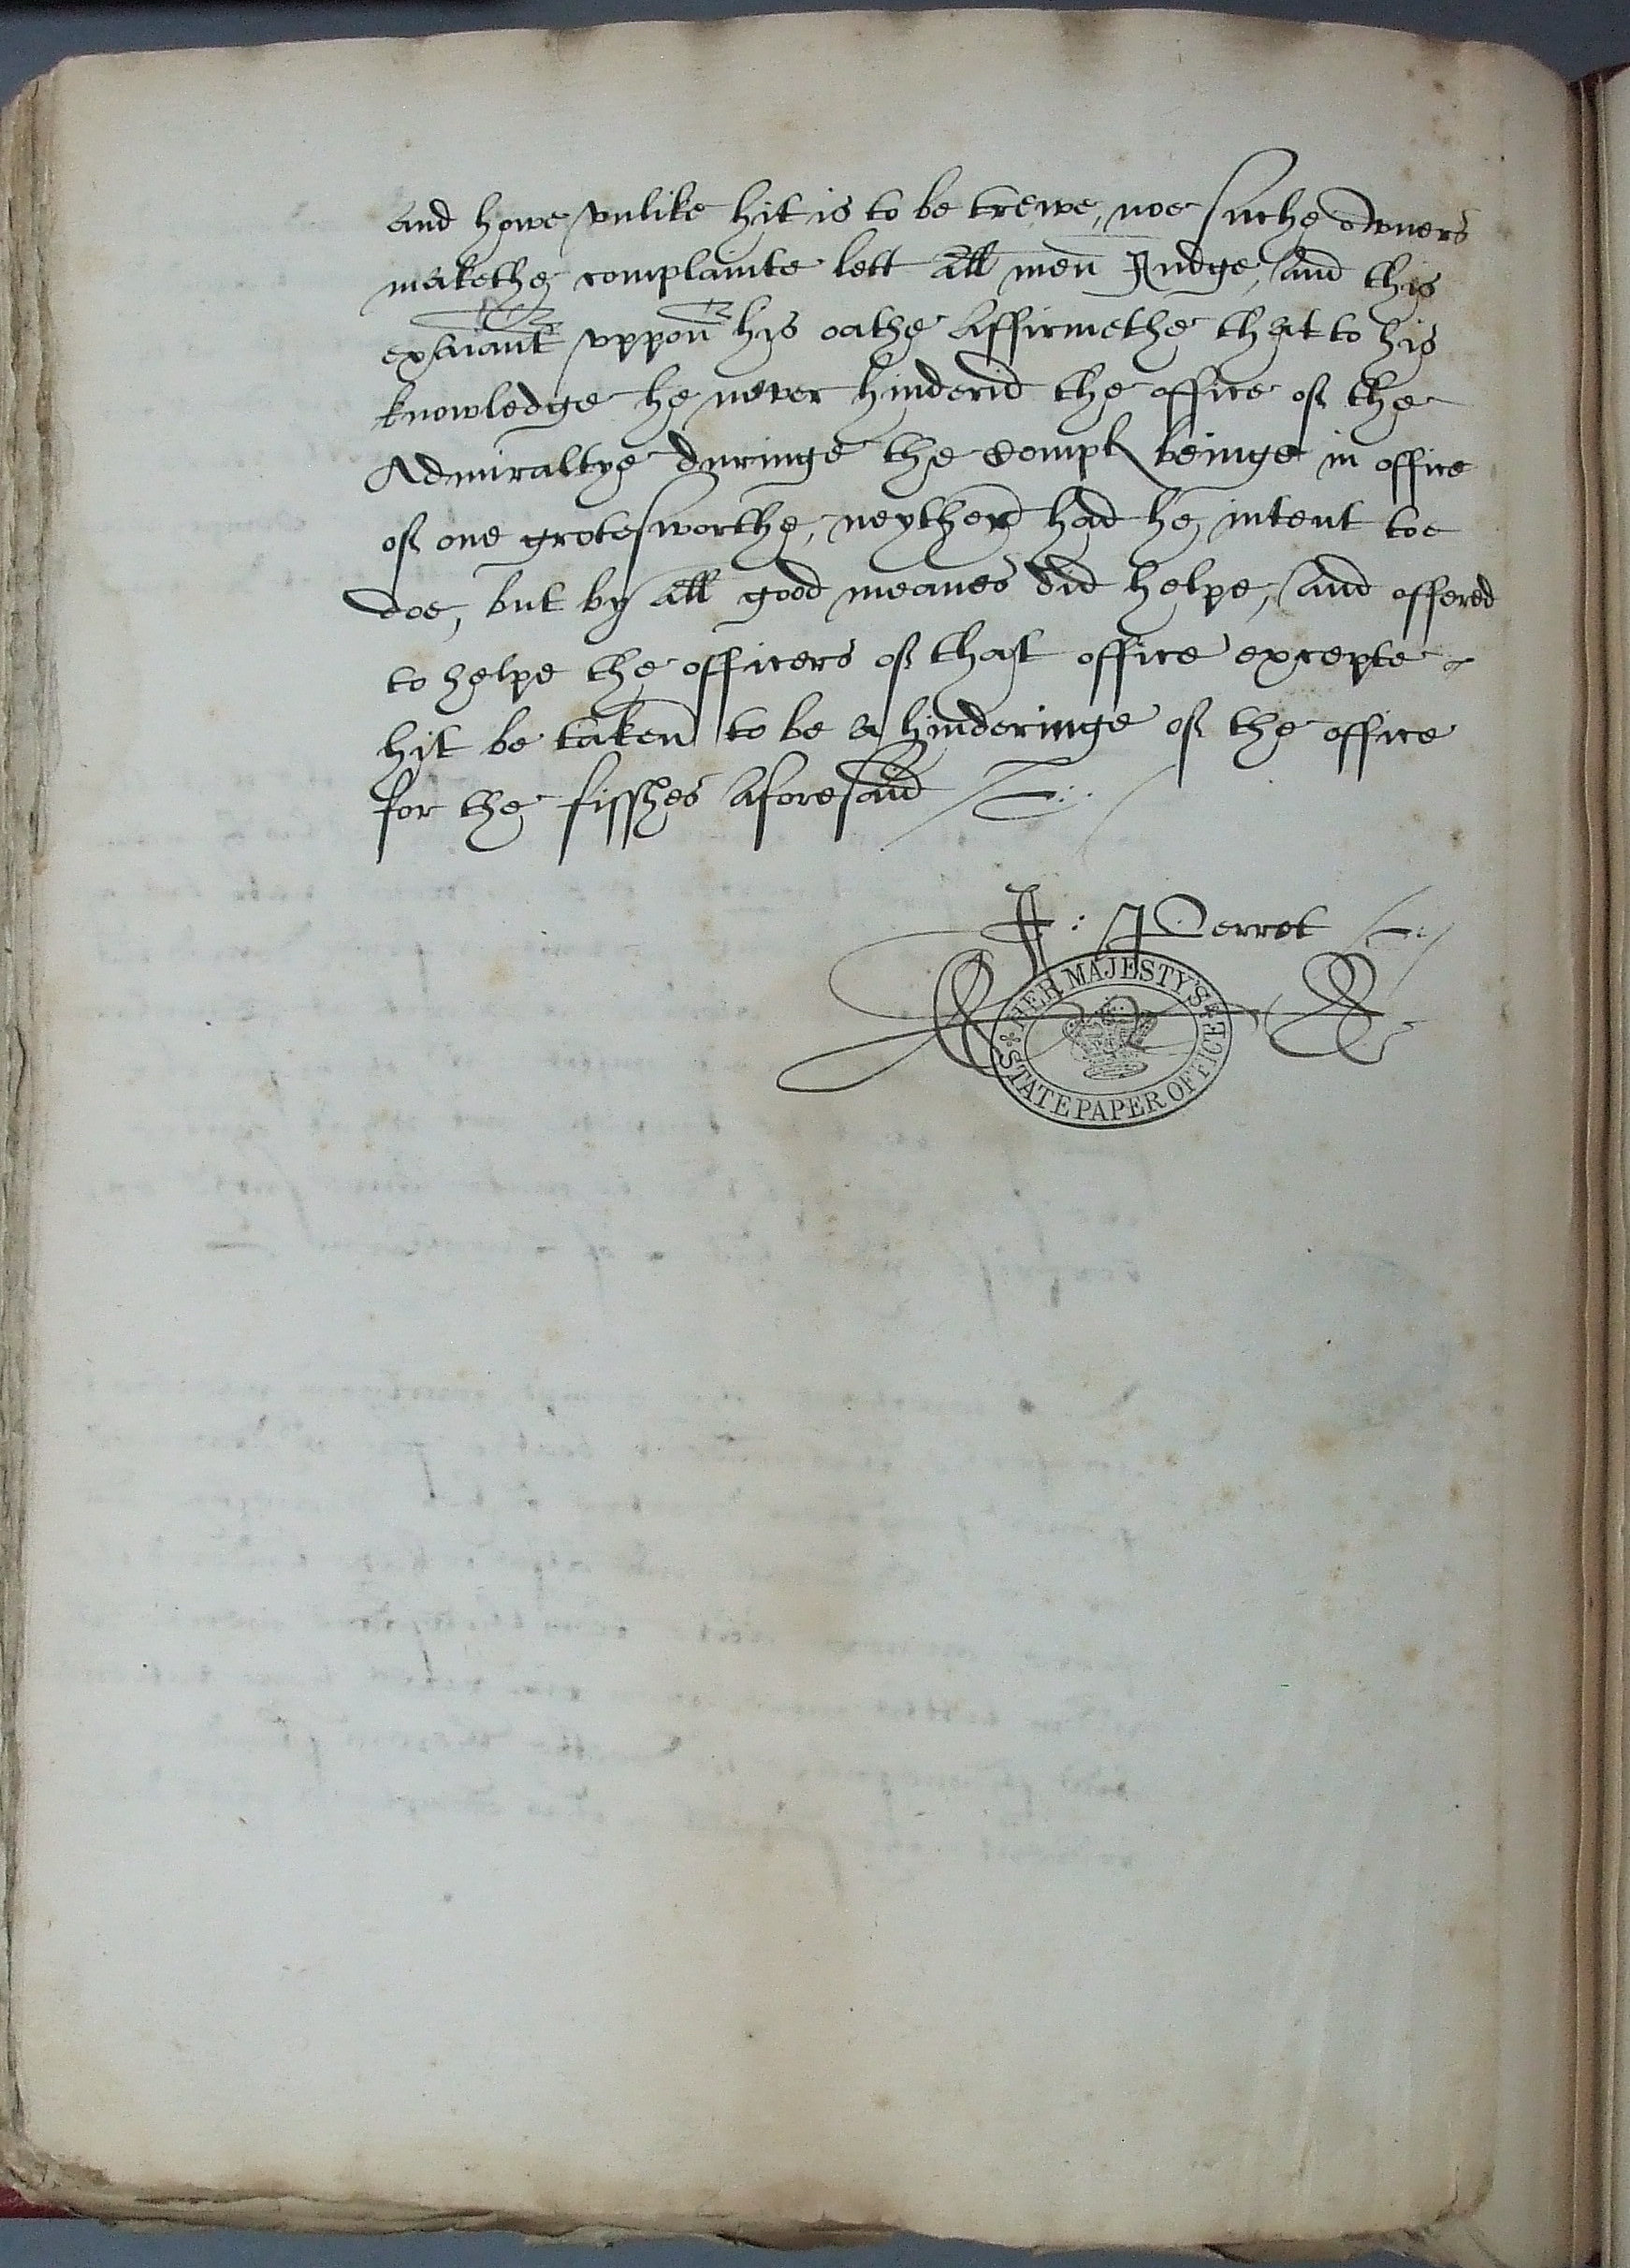 And howe vnlike hit is to be trewe, noe suche Owners
makethe complainte lett All men Judge, And this
exaiant vppon his oathe Affirmethe that to his
knowledge he never hinderid the office of the
Admiraltye duringe the Compl beinge in office
of one grotesworthe, neyther had he intent toe
doe, but by All good meanes did helpe, And offered
to helpe the officers of that office excepte
hit be taken to be A hinderinge of the office
for the fisshes Aforesaid
J: Perrot
HER MAJESTY'S
STATE PAPER OFFICE